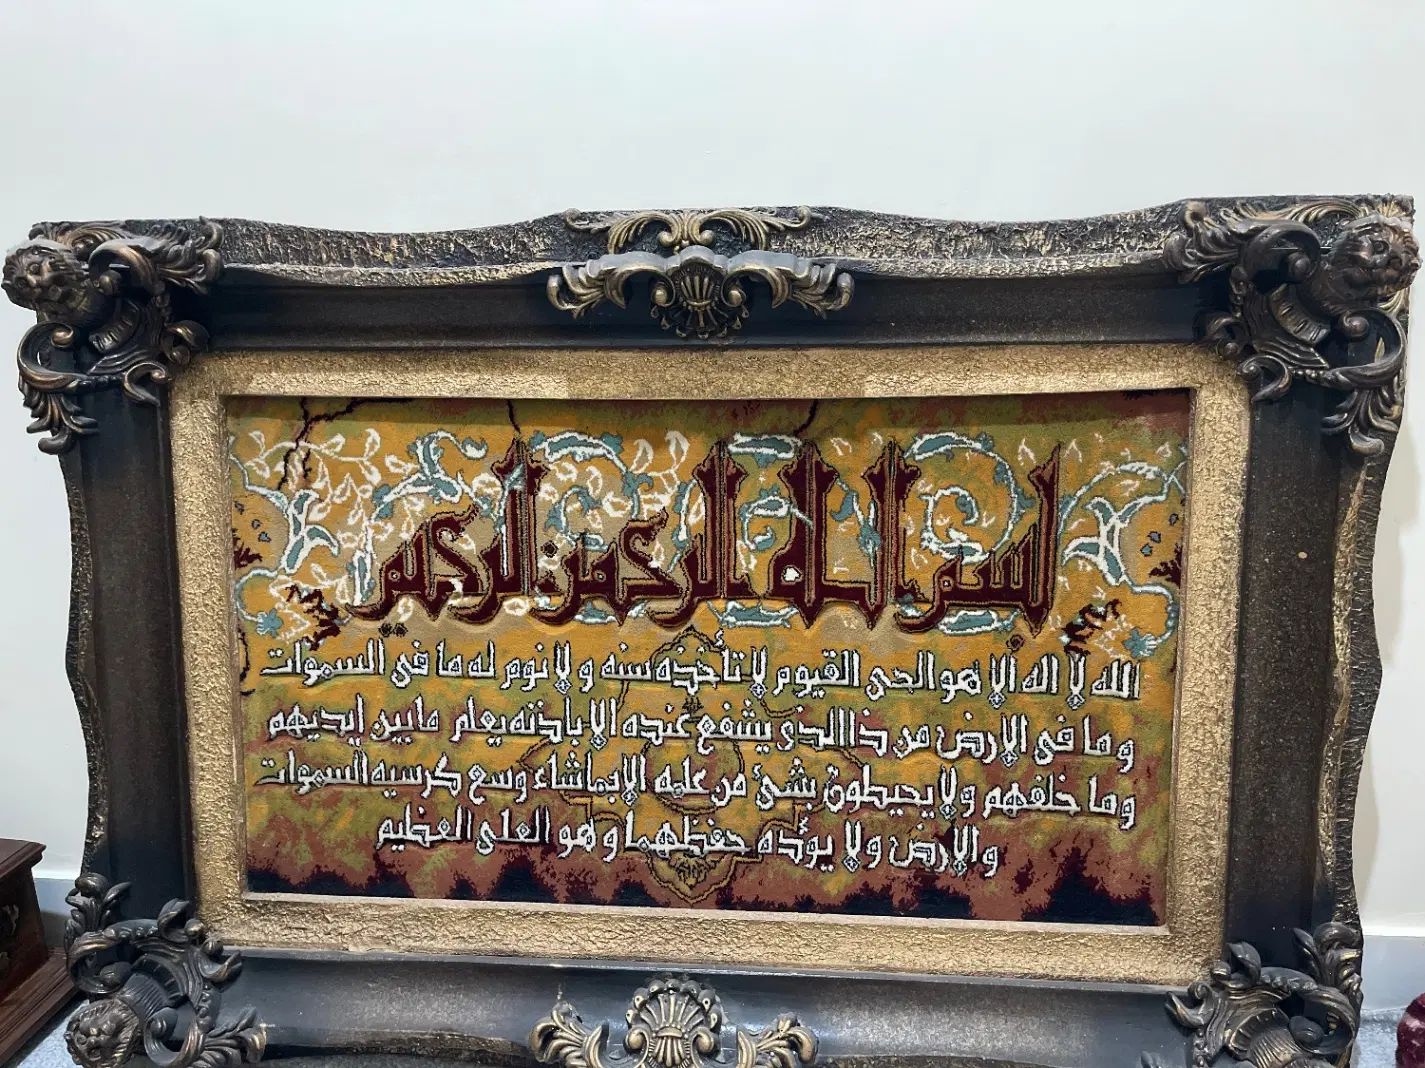 بسم الله الرحمن الرحيم
الله لا اله الا هو الحى القيوم لا تأخذه سنه و لا نوم له ما فى السموات
و ما فى الارض من ذا الذى يشفع عنده الا باذنه يعلم مابين ايديهم
و ما خلفهم و لا يحيطون بشئ من علمه الا بماشاء وسع كرسيه السموات
و الارض و لا يؤده حفظهما و هو العلى العظيم